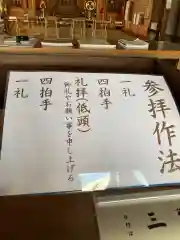 参拝作法
一礼
四拍手
礼拝（低頭）
御礼やお願い事を申し上げる
四拍手
一礼
三